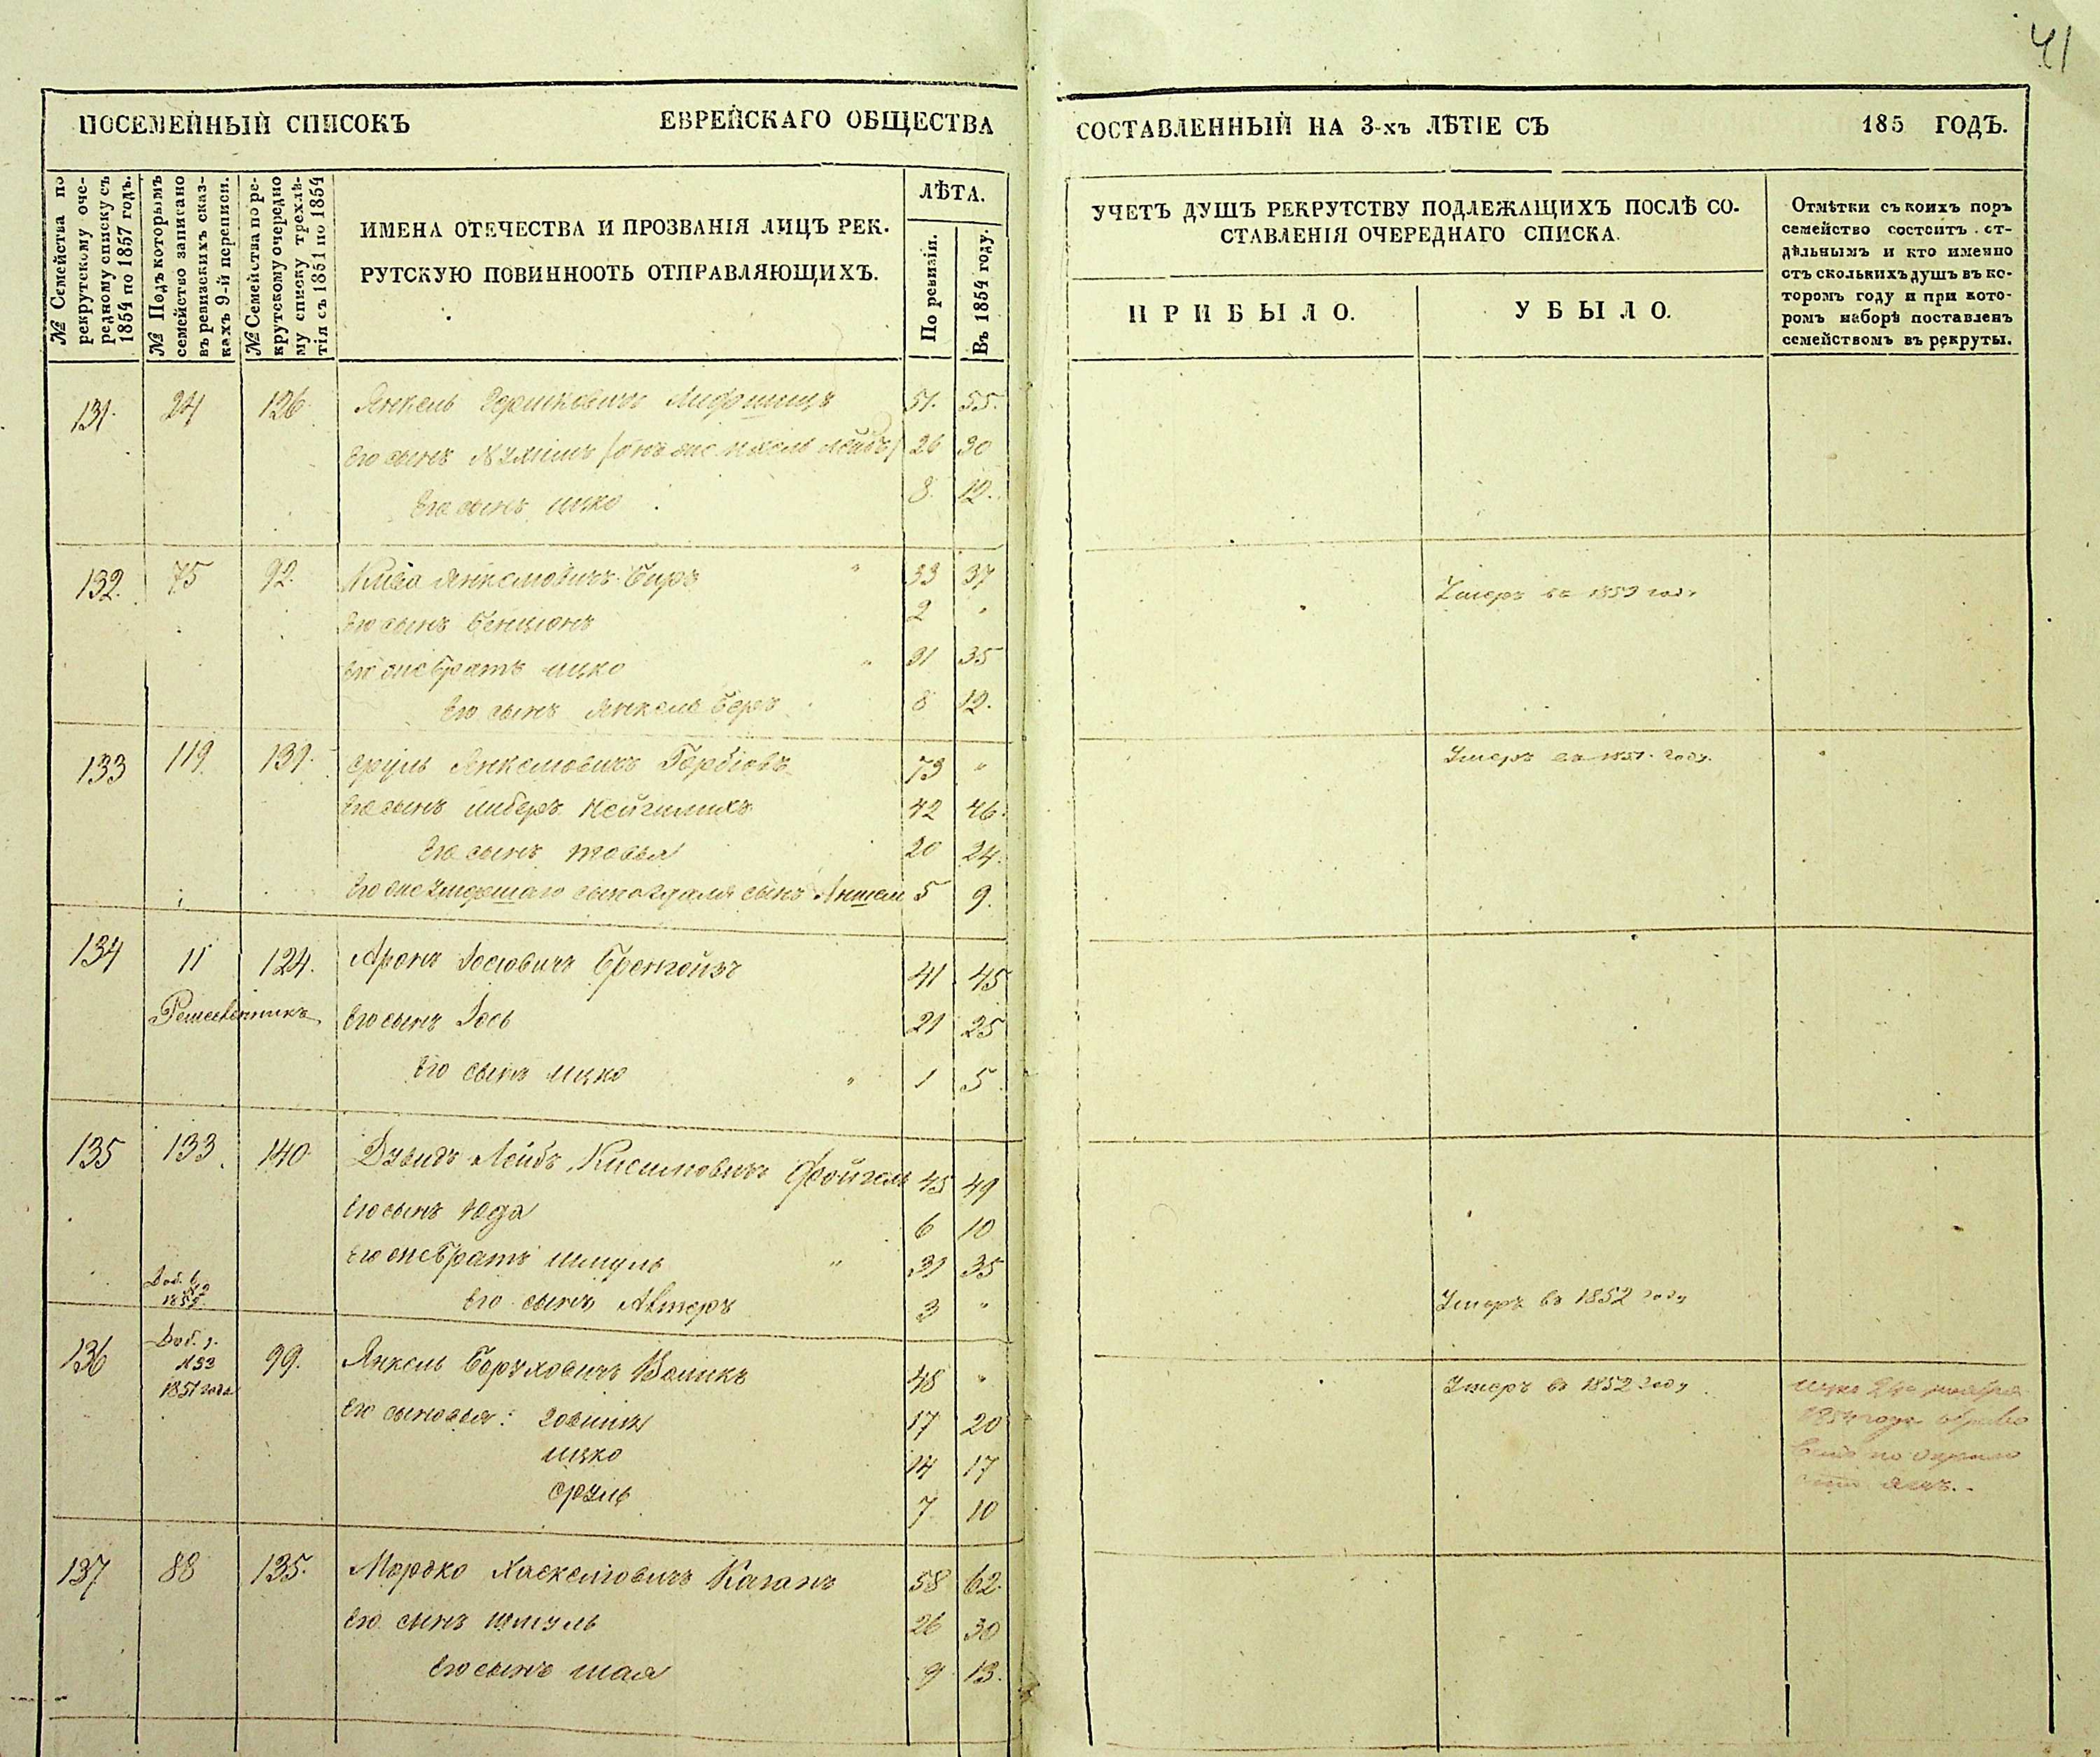 41
ПОСЕМЕЙНЫЙ СПИСОКЪ ЕВРЕЙСКАГО ОБЩЕСТВА СОСТАВЛЕННЫЙ НА 3-хъ ЛѢТІЕ СЪ 185 ГОДЪ.
№ Семейства по
рекрутскому оче-
редному списку съ
1854 по 1857 годъ.
№ Подъ которымъ
семейство записано
въ ревизскихъ сказ-
кахъ 9-й переписи.
№ Семейства по ре-
крутскому очередно
му списку трехлѣ-
тія съ 1851 по 1854
ИМЕНА ОТЕЧЕСТВА И ПРОЗВАНІЯ ЛИЦЪ РЕК-
РУТСКУЮ ПОВИННООТЬ ОТПРАВЛЯЮЩИХЪ.
ЛѢТА.
По ревизіи.
Въ 1854 году.
УЧЕТЪ ДУШЪ РЕКРУТСТВУ ПОДЛЕЖАЩИХЪ ПОСЛѢ СО-
СТАВЛЕНІЯ ОЧЕРЕДНАГО СПИСКА.
ПРИБЫЛО.
УБЫЛО.
Отмѣтки съ коихъ поръ
семейство состоитъ от-
дѣльнымъ и кто именно
отъ сколькихъ душъ въ ко-
торомъ году и при кото-
ромъ наборѣ поставленъ
семействомъ въ рекруты.
131. 24 126. Янкель Гершковичъ Лифшицъ 51. 55.
Его сынъ Нухимъ 26 30
Его сынъ Ицко 8. 12.
132. 75 92. Янкелiовичъ Биръ 33 37 Умеръ въ 1853 году
Его сынъ Бенционъ 2 "
Его же братъ Ицко 31 35
Его сынъ Янкель Беръ 8 12.
133 119. 131. Сруль Янкелiовичъ 73 " Умеръ въ 1851 году.
Его сынъ Либеръ 42 46.
Его сынъ Товья 20 24.
Его же умершаго сына сынъ Аншель 5 9.
134 11 124. Аронъ Іосіовичъ 41 45
Его сынъ Іось 21 25
Его сынъ Ицко " 1 5.
135 133. 140. Дувидъ Лейбъ Кисилiовичъ Фойгель 45 49
Его сынъ Юда 6 10
Его же братъ Шмуль " 31 35
Его сынъ Алтеръ 3 " Умеръ въ 1852 году
136 Доб. 99. Янкель Боруховичъ Воликъ 48 " Умеръ въ 1852 году.
1851 года
Его сыновья: 17 20
Ицко 14 17
Сруль 7 10
137 88 135. Мордко Хаскелiовичъ Каганъ 58 62.
Его сынъ Шмуль 26 30
Его сынъ Шая 9 13.